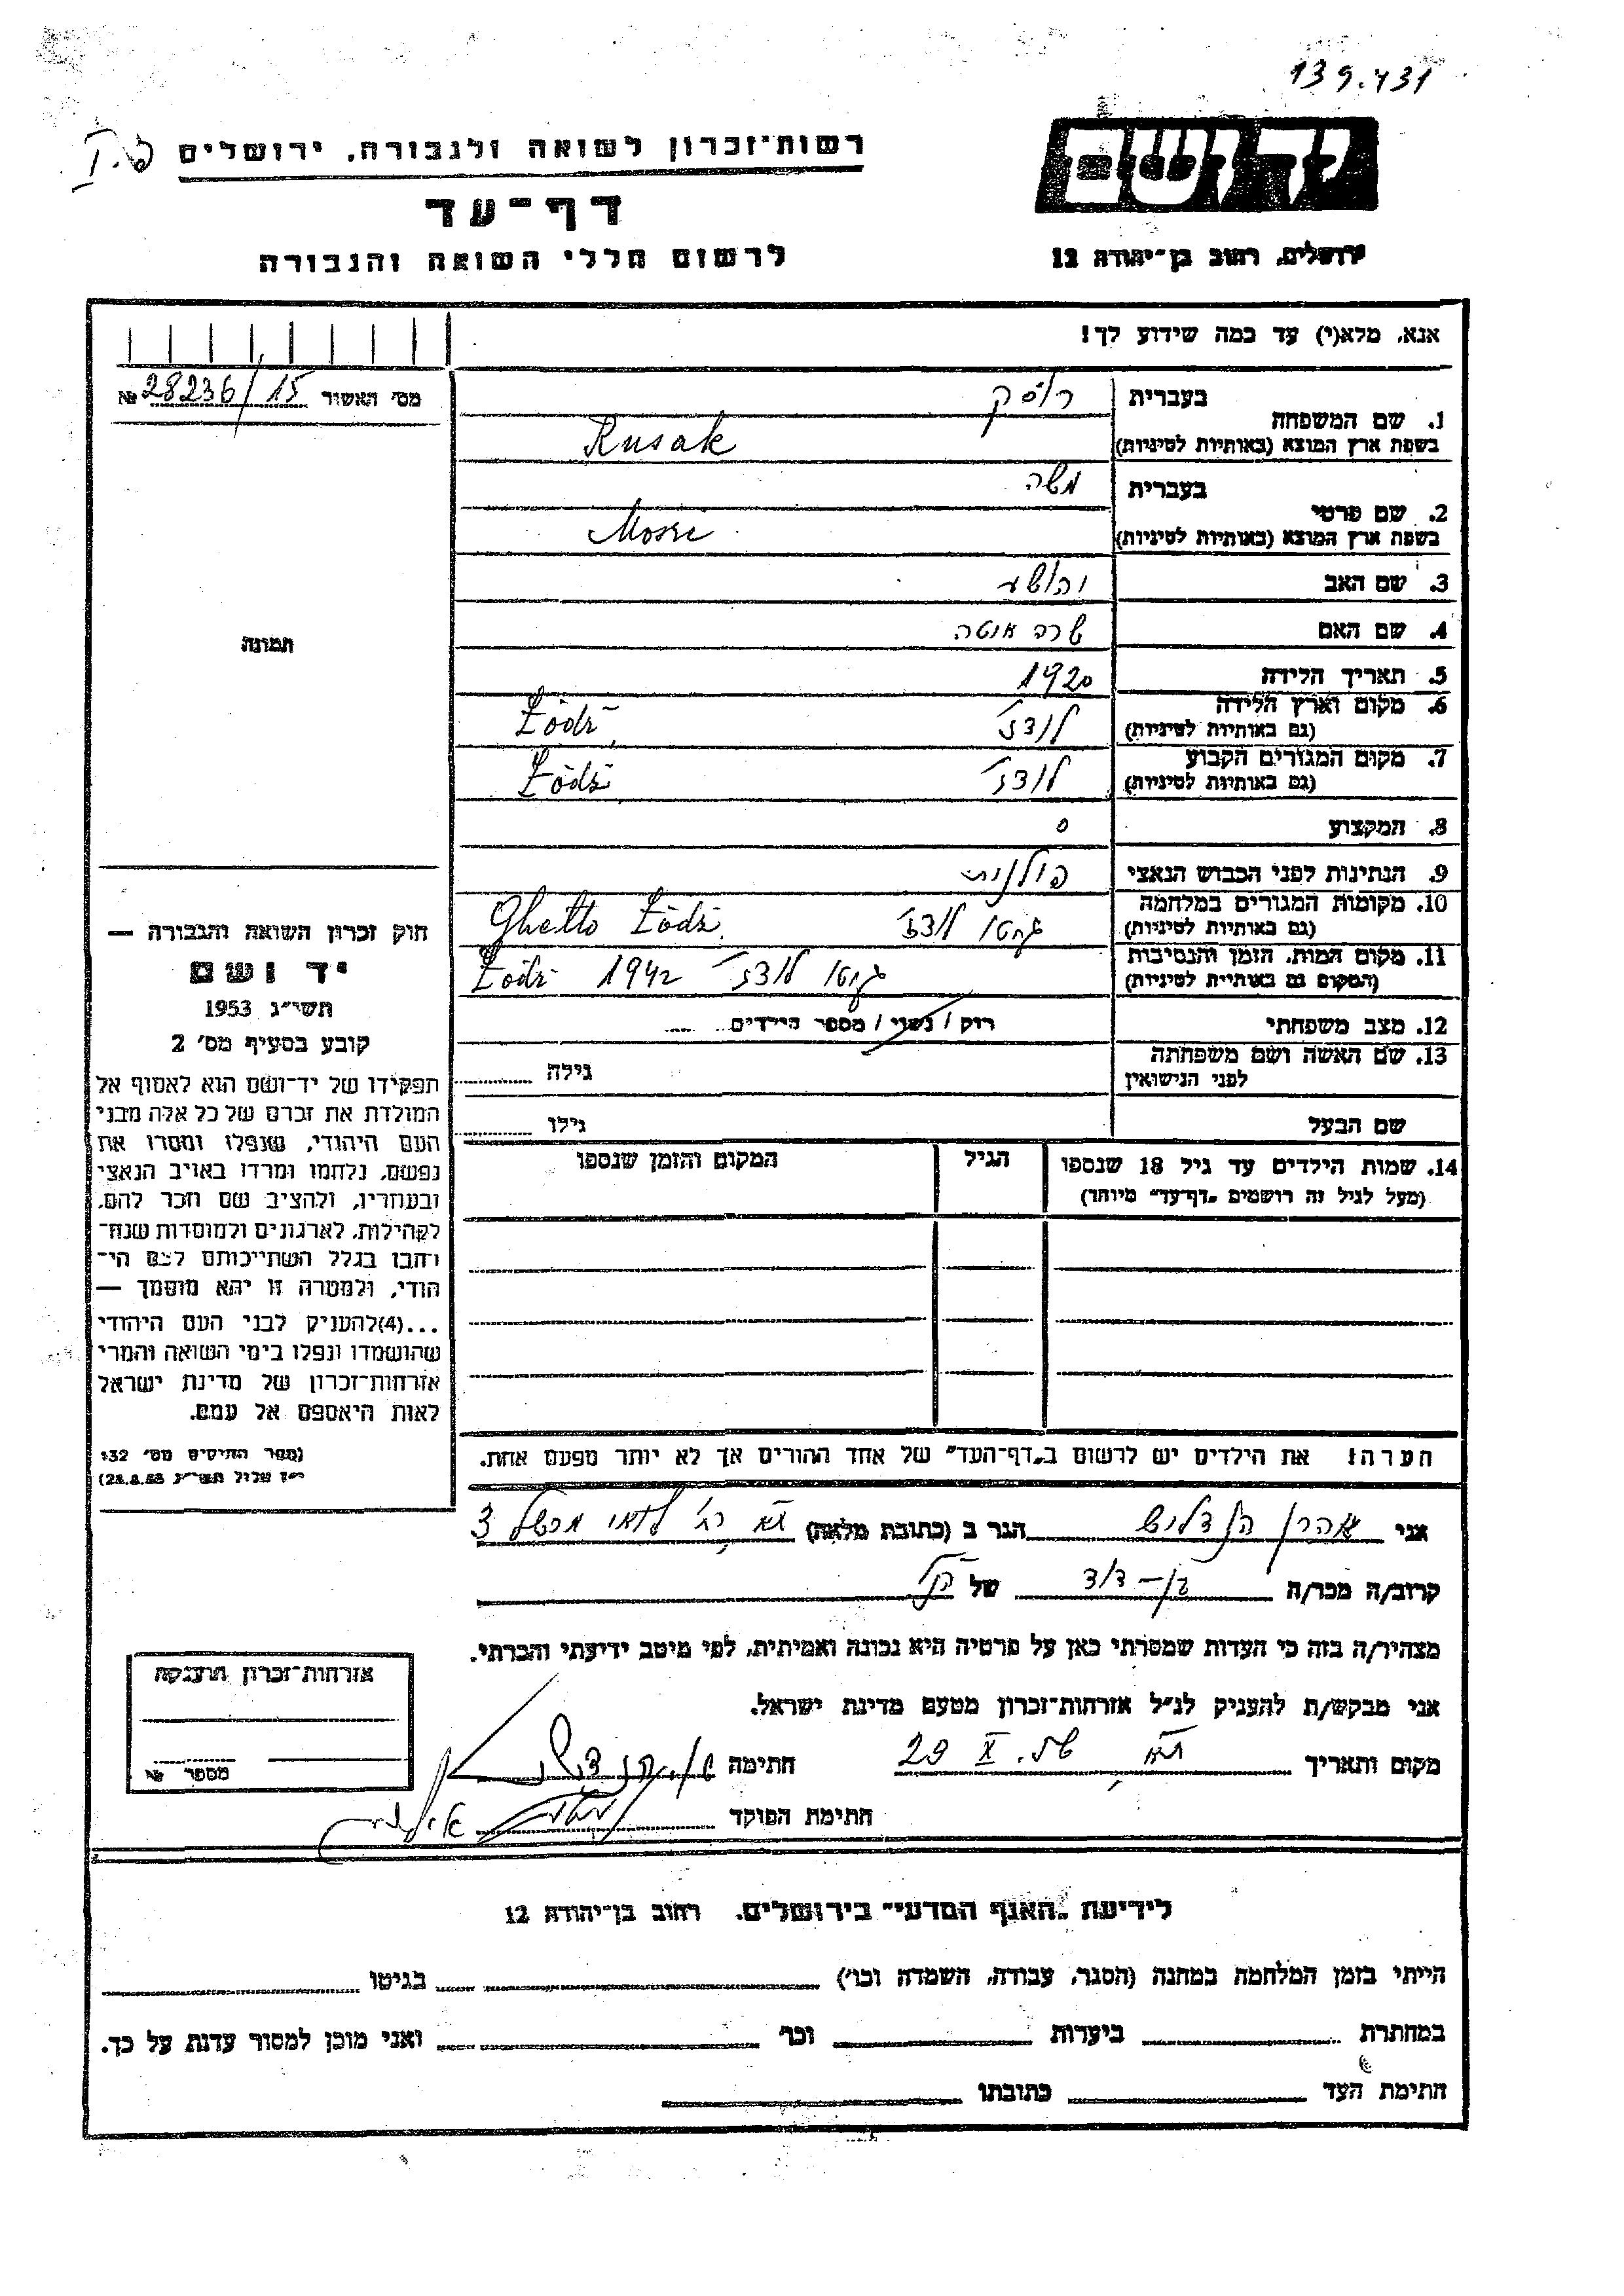 139.431
רשות־זכרון לשואה ולגבורה, ירושלים
דף־עד
לרשום חללי השואה והגבורה
יד ושם
ירושלים, רחוב בן־יהודה 12
אנא, מלא(י) עד כמה שידוע לך!
מס׳ האשור 28236/15 №
תמונה
1. שם המשפחה
בעברית רוסק
בשפת ארץ המוצא (באותיות לטיניות) Rusak
2. שם פרטי
בעברית משה
בשפת ארץ המוצא (באותיות לטיניות)
3. שם האב יהושע
4. שם האם שרה
5. תאריך הלידה 1920
6. מקום וארץ הלידה לודז׳ Łódź
(גם באותיות לטיניות)
7. מקום המגורים הקבוע לודז׳ Łódź
(גם באותיות לטיניות)
8. המקצוע
9. הנתינות לפני הכבוש הנאצי פולנית
10. מקומות המגורים במלחמה גיטו לודז׳ Ghetto Łódź
(גם באותיות לטיניות)
11. מקום המות, הזמן והנסיבות גיטו לודז׳ 1942 Łódź
(המקום גם באותיות לטיניות)
12. מצב משפחתי רוק / נשוי / מספר הילדים
13. שם האשה ושם משפחתה גילה
לפני הנישואין
שם הבעל גילו
14. שמות הילדים עד גיל 18 שנספו הגיל המקום והזמן שנספו
(מעל לגיל זה רושמים „דף־עד״ מיוחד)
הערה! את הילדים יש לרשום ב„דף־העד״ של אחד ההורים אך לא יותר מפעם אחת.
חוק זכרון השואה והגבורה —
יד ושם
תשי״ג 1953
קובע בסעיף מס׳ 2
תפקידו של יד־ושם הוא לאסוף אל
המולדת את זכרם של כל אלה מבני
העם היהודי, שנפלו ומסרו את
נפשם, נלחמו ומרדו באויב הנאצי
ובעוזריו, ולהציב שם וזכר להם,
לקהילות, לארגונים ולמוסדות שנח־
רבו בגלל השתייכותם לעם הי־
הודי, ולמטרה זו יהא מוסמך —
...(4) להעניק לבני העם היהודי
שהושמדו ונפלו בימי השואה והמרי
אזרחות־זכרון של מדינת ישראל
לאות היאספם אל עמם.
(ספר החוקים מס׳ 132
י״ז אלול תשי״ג 28.8.53)
אני אהרן הנדלוס הגר ב (כתובת מלאה) 3
קרוב/ה מכר/ה בן־דוד של הנ״ל
מצהיר/ה בזה כי העדות שמסרתי כאן על פרטיה היא נכונה ואמיתית, לפי מיטב ידיעתי והכרתי.
אני מבקש/ת להעניק לנ״ל אזרחות־זכרון מטעם מדינת ישראל.
מקום ותאריך 29 X חתימה
חתימת הפוקד
אזרחות־זכרון הוענקה
מספר №
לידיעת „האגף המדעי״ בירושלים, רחוב בן־יהודה 12
הייתי בזמן המלחמה במחנה (הסגר, עבודה, השמדה וכו׳) בגיטו
במחתרת ביערות וכו׳ ואני מוכן למסור עדות על כך.
חתימת העד כתובתו